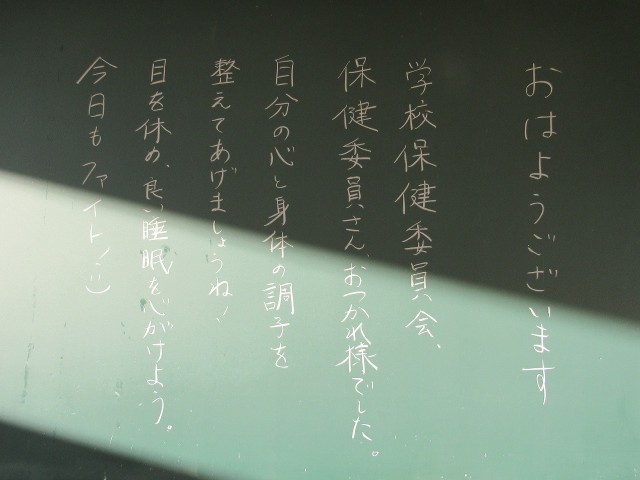 おはようございます
学校保健委員会、
保健委員さん、おつかれ様でした。
自分の心と身体の調子を
整えてあげましょうね!
目を休め、良い睡眠を心がけよう。
今日もファイト!:)